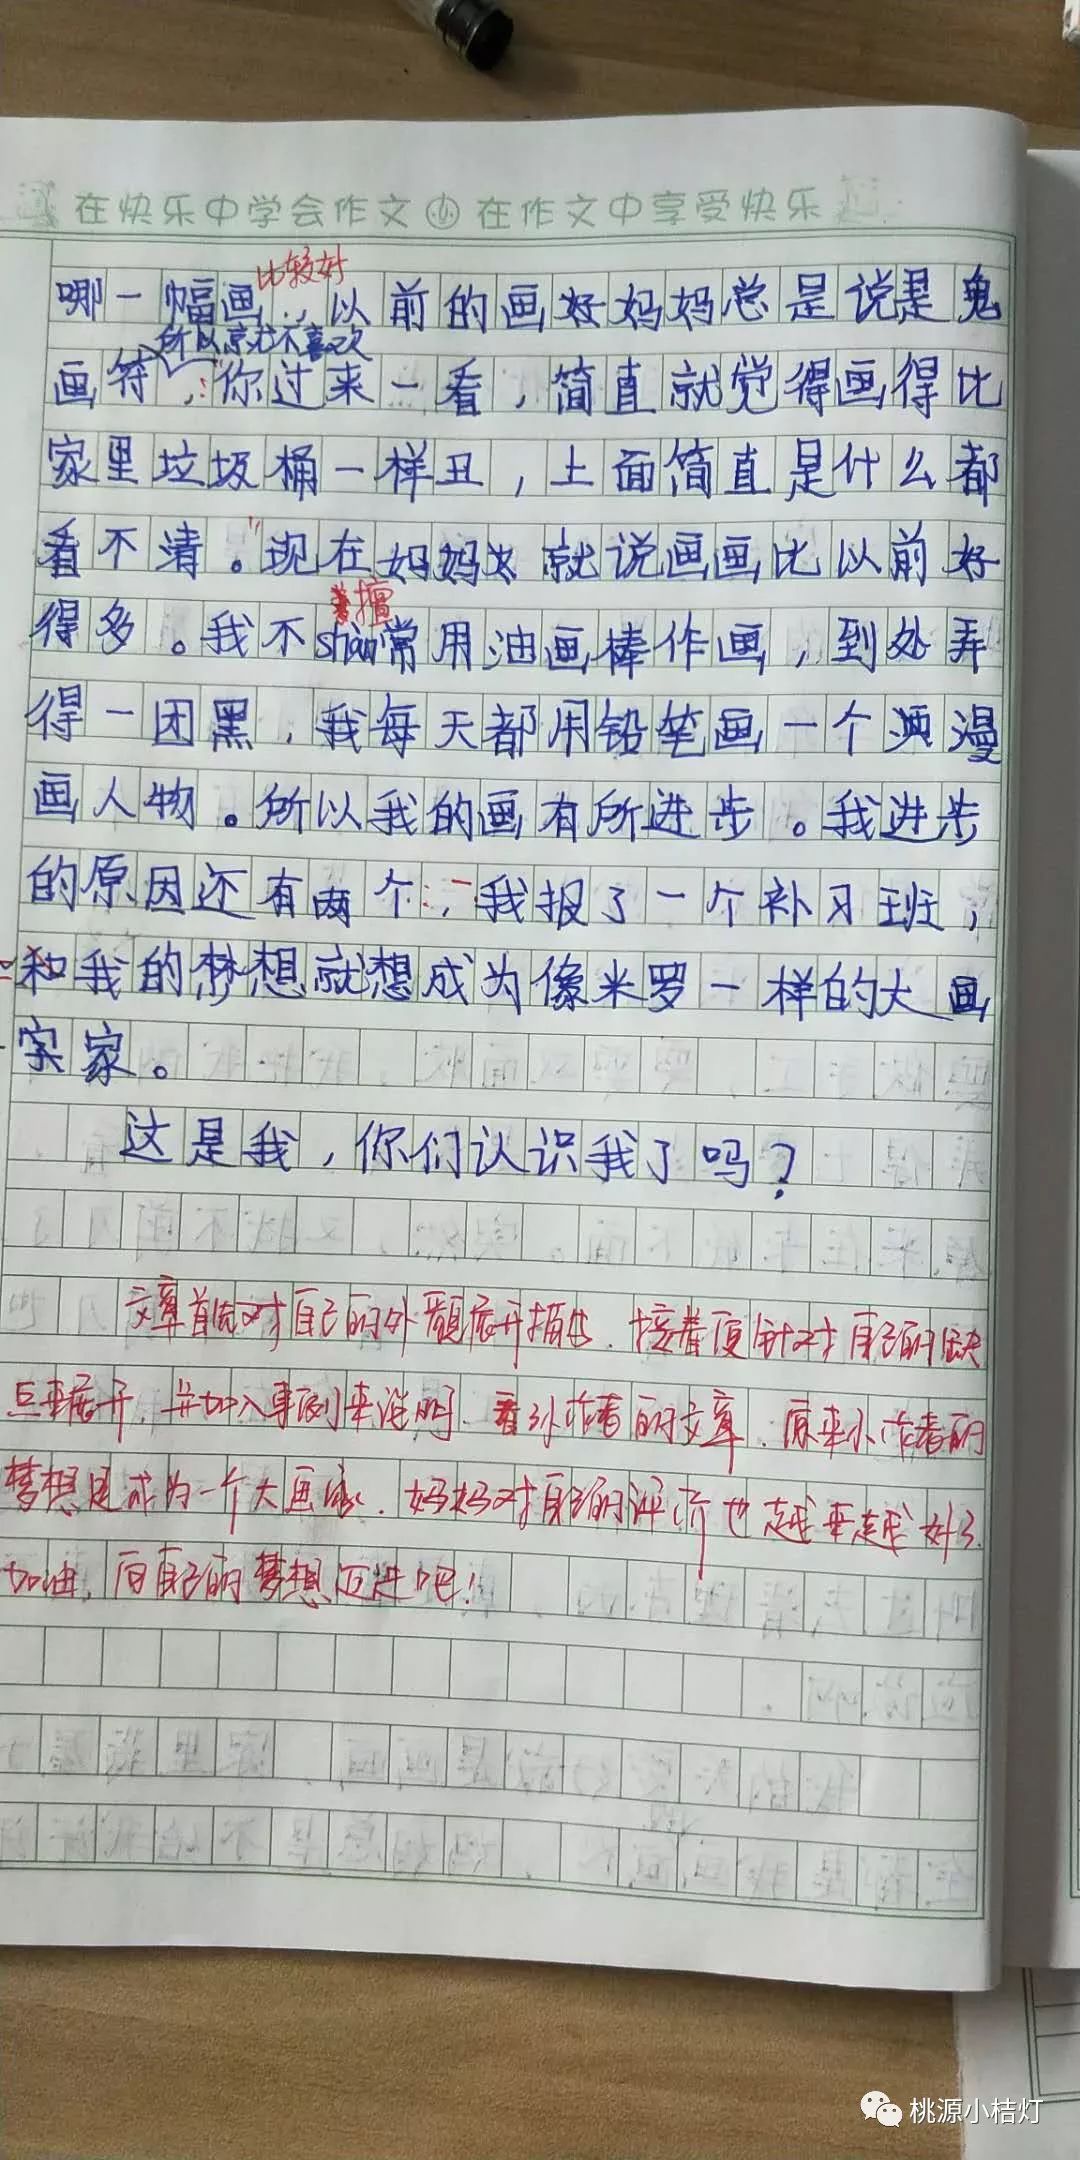 在快乐中学会作文 小 在作文中享受快乐
比较好
哪一幅画，以前的画好妈妈总是说是鬼
所以就不喜欢
画符，：“你过来一看，简直就觉得画得比
家里垃圾桶一样丑，上面简直是什么都
看不清。”现在妈妈又就说画画比以前好
擅
得多。我不shàn常用油画棒作画，到处弄
得一团黑，我每天都用铅笔画一个漫
画人物。所以我的画有所进步。我进步
的原因还有两个：一，我报了一个补习班，
二和我的梦想就想成为像米罗一样的大画
家。
这是我，你们认识我了吗？
文章首先对自己的外貌展开描写，接着便针对自己的缺
点来展开，并加入事例来说明，看了小作者的文章，原来小作者的
梦想是成为一个大画家，妈妈对自己的评价也越来越好了，
加油，向自己的梦想迈进吧！
桃源小桔灯